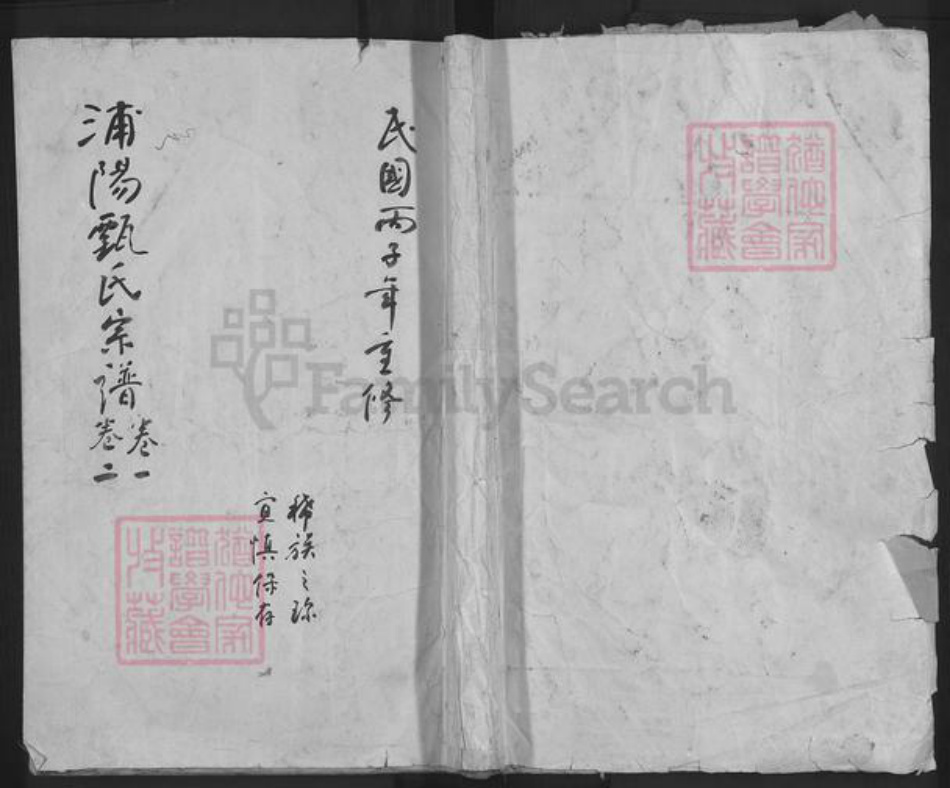 民國丙子年重修
稀族之珎
宜慎保存
浦陽甄氏宗譜
卷一
卷二
猶他家
譜學會
收藏
猶他家
譜學會
收藏
FamilySearch